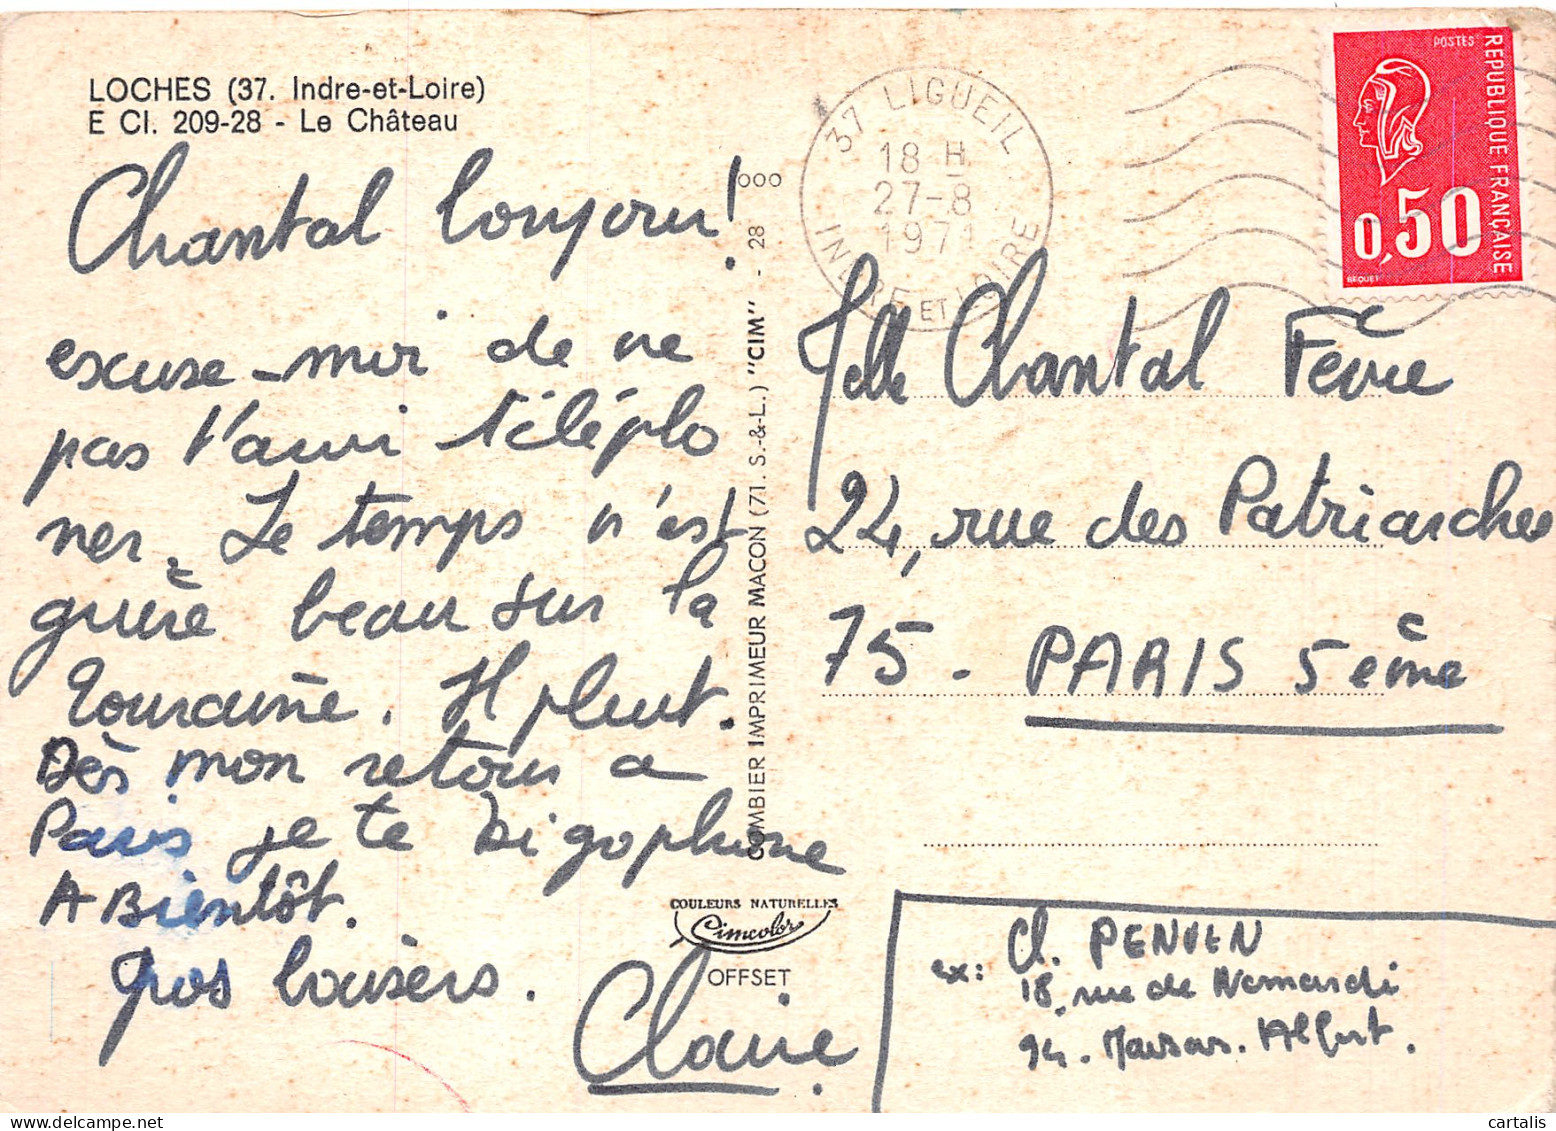 LOCHES (37. Indre-et-Loire)
E CI. 209-28 - Le Château
Chantal bonjour!
excuse-moi de ne
pas t'avoir télépho
ner. Le temps n'est
guère beau sur la
Touraine. Il pleut.
Dès mon retour a
Paris je te bigophone
A Bientôt.
gros baisers.
Claire
000
COMBIER IMPRIMEUR MACON (71. S.-&-L.) "CIM" - 28
COULEURS NATURELLES
Cimcolor
OFFSET
37 LIGUEIL
18 H
27-8
1971
INDRE ET LOIRE
POSTES
REPUBLIQUE FRANÇAISE
0,50
BEQUET
Melle Chantal Fèvre
24, rue des Patriarches
75 - PARIS 5ème
ex: Cl. PENVEN
18, rue de Normandi
94 - Maisons. Alfort.
cartalis